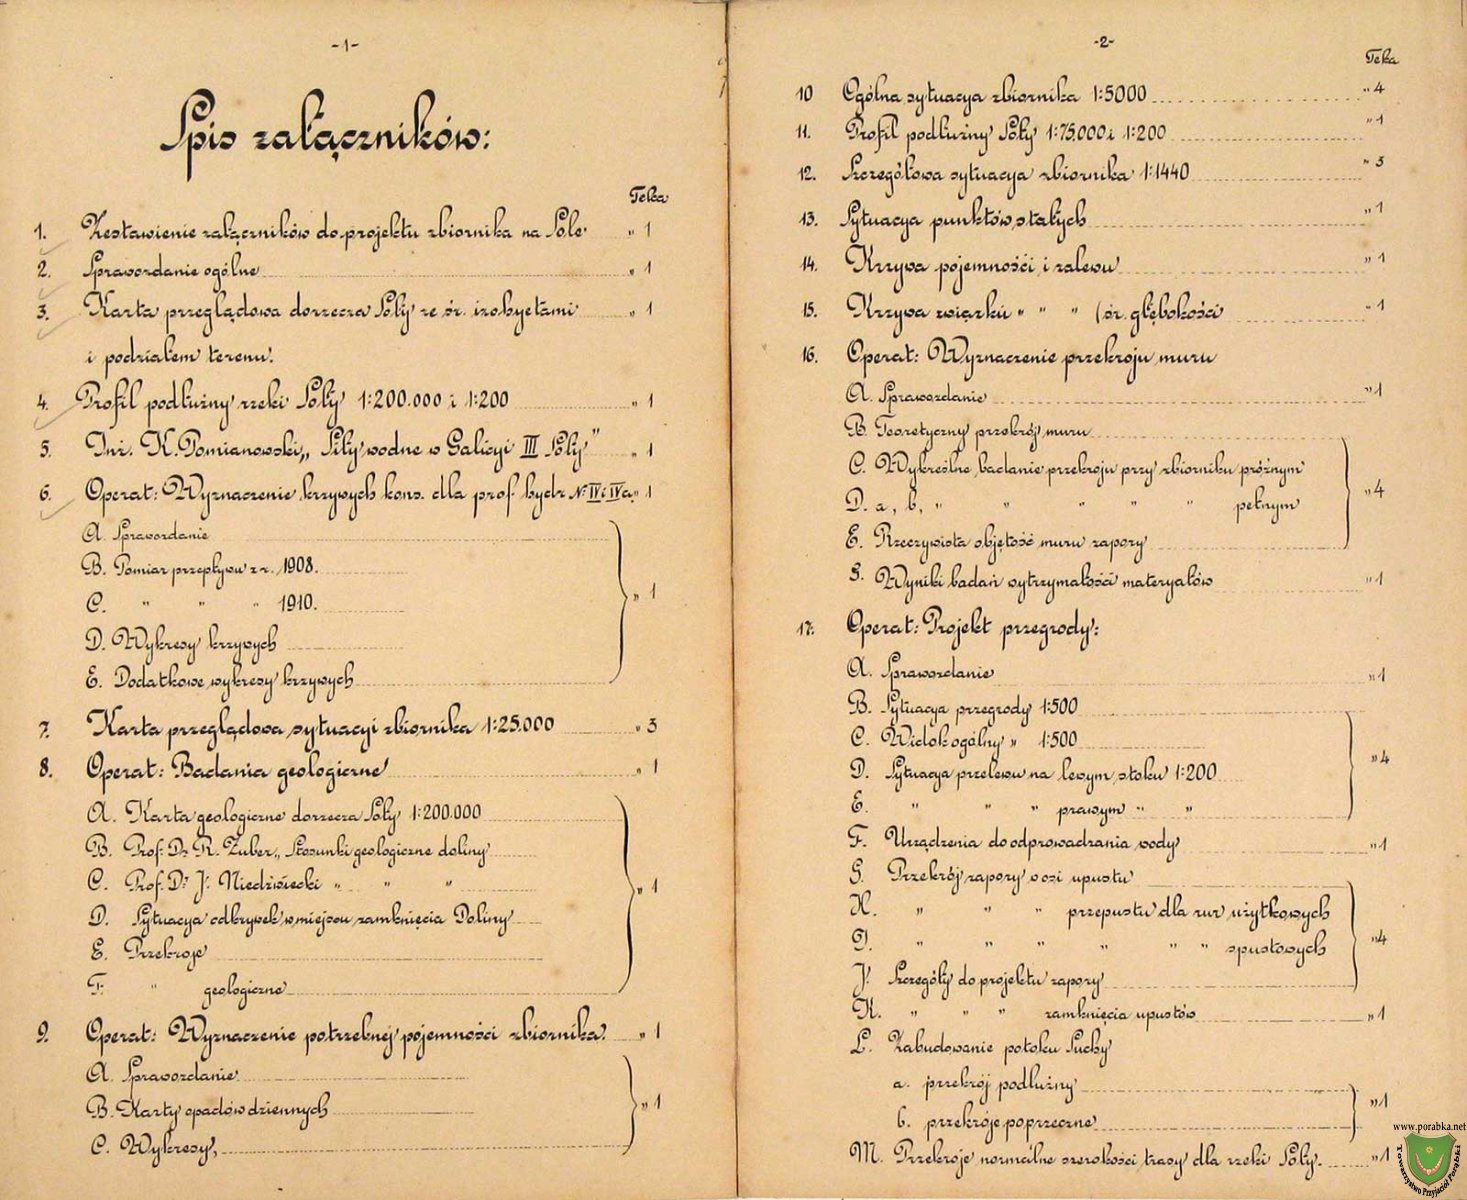 -1-
Spis załączników:
Teka
1. Zestawienie załączników do projektu zbiornika na Sole „ 1
2. Sprawozdanie ogólne „ 1
3. Karta przeglądowa dorzecza Soły ze śr. izohyetami „ 1
i podziałem terenu.
4. Profil podłużny rzeki Soły 1:200.000 i 1:200 „ 1
5. Inż. K. Pomianowski „Siły wodne w Galicyi III Soły" „ 1
6. Operat: Wyznaczenie krzywych kons. dla prof. hydr. № IV i IVa „ 1
A. Sprawozdanie
B. Pomiar przepływu z r. 1908.
C. „ „ „ 1910. „ 1
D. Wykresy krzywych
E. Dodatkowe wykresy krzywych
7. Karta przeglądowa sytuacyi zbiornika 1:25.000 „ 3
8. Operat: Badania geologiczne „ 1
A. Karta geologiczne dorzecza Soły 1:200.000
B. Prof. Dr R. Zuber „Stosunki geologiczne doliny
C. Prof. Dr J. Niedźwiecki „ „ „ „ 1
D. Sytuacya odkrywek w miejscu zamknięcia Doliny
E. Przekroje
F. „ geologiczne
9. Operat: Wyznaczenie potrzebnej pojemności zbiornika. „ 1
A. Sprawozdanie
B. Karty opadów dziennych „ 1
C. Wykresy,
-2-
Teka
10 Ogólna sytuacya zbiornika 1:5000 „ 4
11. Profil podłużny Soły 1:75.000 i 1:200 „ 1
12. Szczegółowa sytuacya zbiornika 1:1440 „ 3
13. Sytuacya punktów stałych „ 1
14. Krzywa pojemności i zalewu „ 1
15. Krzywa związku „ „ „ (śr. głębokości „ 1
16. Operat: Wyznaczenie przekroju muru
A. Sprawozdanie „ 1
B. Teoretyczny przekrój muru
C. Wykreślne badanie przekroju przy zbiorniku próżnym
D. a, b, „ „ „ „ „ pełnym „ 4
E. Rzeczywista objętość muru zapory
G. Wyniki badań wytrzymałości materyałów „ 1
17. Operat: Projekt przegrody:
A. Sprawozdanie „ 1
B. Sytuacya przegrody 1:500
C. Widok ogólny „ 1:500
D. Sytuacya przelewu na lewym stoku 1:200 „ 4
E. „ „ „ prawym „ „
F. Urządzenia do odprowadzania wody „ 1
G. Przekrój zapory w osi upustu
H. „ „ „ przepustu dla rur użytkowych
I. „ „ „ „ „ „ spustowych „ 4
J. Szczegóły do projektu zapory
K. „ „ „ zamknięcia upustów „ 1
L. Zabudowanie potoku Suchy
a. przekrój podłużny
b. przekroje poprzeczne „ 1
M. Przekroje normalne szerokości trasy dla rzeki Soły. „ 1
www.porabka.net
Towarzystwo Przyjaciół Porąbki